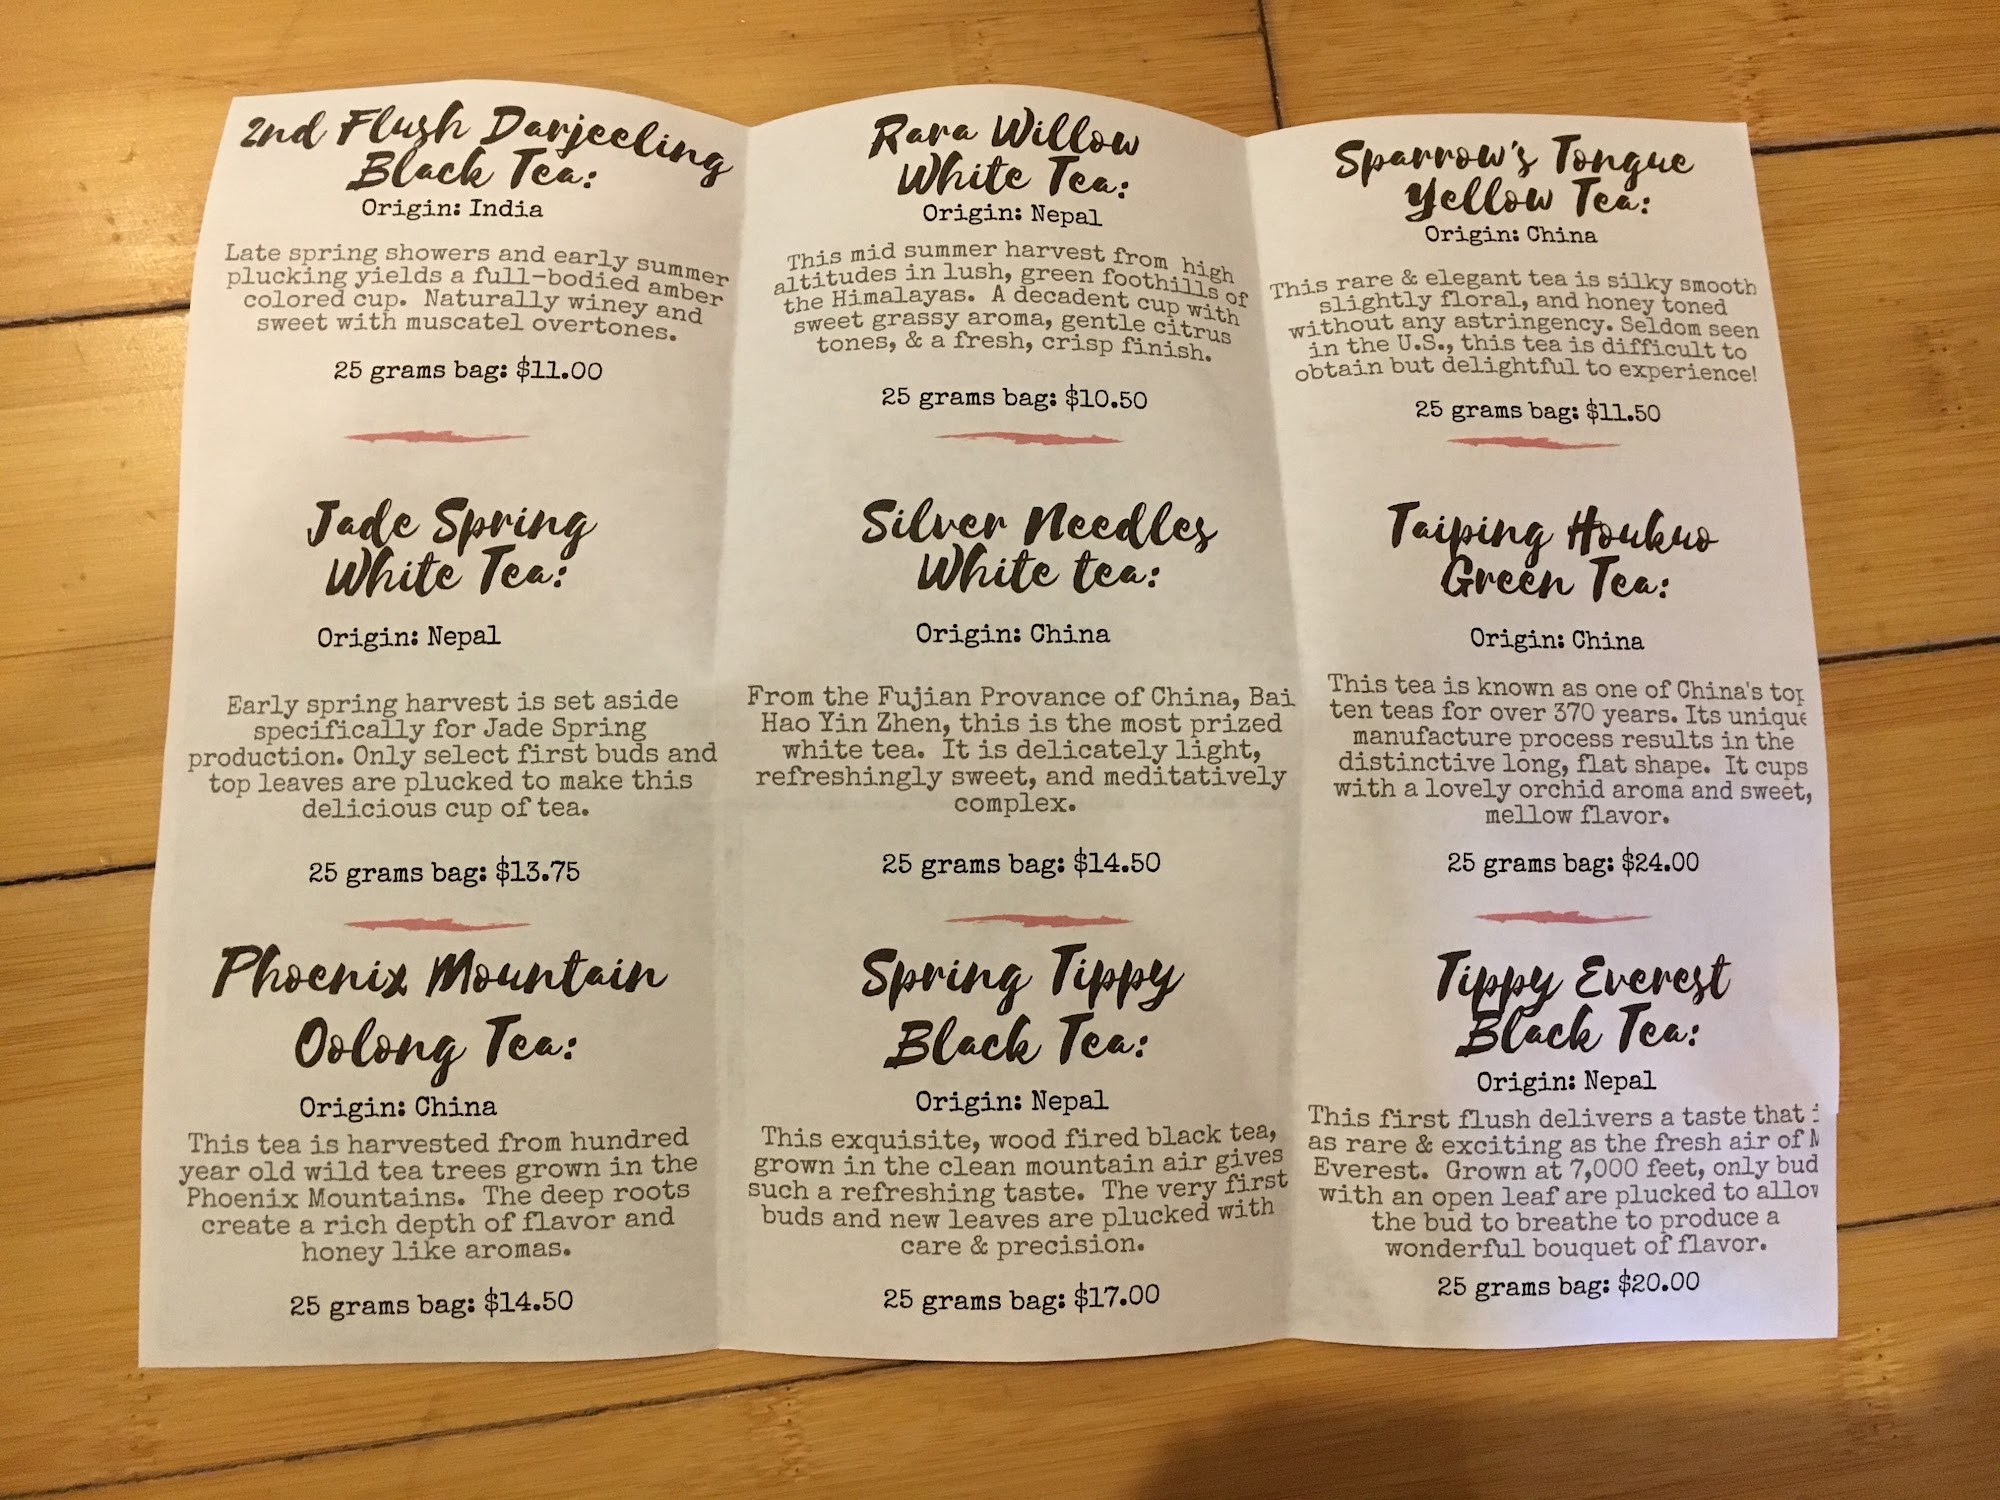 2nd Flush Darjeeling
Black Tea:
Origin: India
Late spring showers and early summer
plucking yields a full-bodied amber
colored cup. Naturally winey and
sweet with muscatel overtones.
25 grams bag: $11.00
Jade Spring
White Tea:
Origin: Nepal
Early spring harvest is set aside
specifically for Jade Spring
production. Only select first buds and
top leaves are plucked to make this
delicious cup of tea.
25 grams bag: $13.75
Phoenix Mountain
Oolong Tea:
Origin: China
This tea is harvested from hundred
year old wild tea trees grown in the
Phoenix Mountains. The deep roots
create a rich depth of flavor and
honey like aromas.
25 grams bag: $14.50
Rara Willow
White Tea:
Origin: Nepal
This mid summer harvest from high
altitudes in lush, green foothills of
the Himalayas. A decadent cup with
sweet grassy aroma, gentle citrus
tones, & a fresh, crisp finish.
25 grams bag: $10.50
Silver Needles
White tea:
Origin: China
From the Fujian Provance of China, Bai
Hao Yin Zhen, this is the most prized
white tea. It is delicately light,
refreshingly sweet, and meditatively
complex.
25 grams bag: $14.50
Spring Tippy
Black Tea:
Origin: Nepal
This exquisite, wood fired black tea,
grown in the clean mountain air gives
such a refreshing taste. The very first
buds and new leaves are plucked with
care & precision.
25 grams bag: $17.00
Sparrow's Tongue
Yellow Tea:
Origin: China
This rare & elegant tea is silky smooth
slightly floral, and honey toned
without any astringency. Seldom seen
in the U.S., this tea is difficult to
obtain but delightful to experience!
25 grams bag: $11.50
Taiping Houkuo
Green Tea:
Origin: China
This tea is known as one of China's top
ten teas for over 370 years. Its unique
manufacture process results in the
distinctive long, flat shape. It cups
with a lovely orchid aroma and sweet,
mellow flavor.
25 grams bag: $24.00
Tippy Everest
Black Tea:
Origin: Nepal
This first flush delivers a taste that
as rare & exciting as the fresh air of
Everest. Grown at 7,000 feet, only bud
with an open leaf are plucked to allow
the bud to breathe to produce a
wonderful bouquet of flavor.
25 grams bag: $20.00